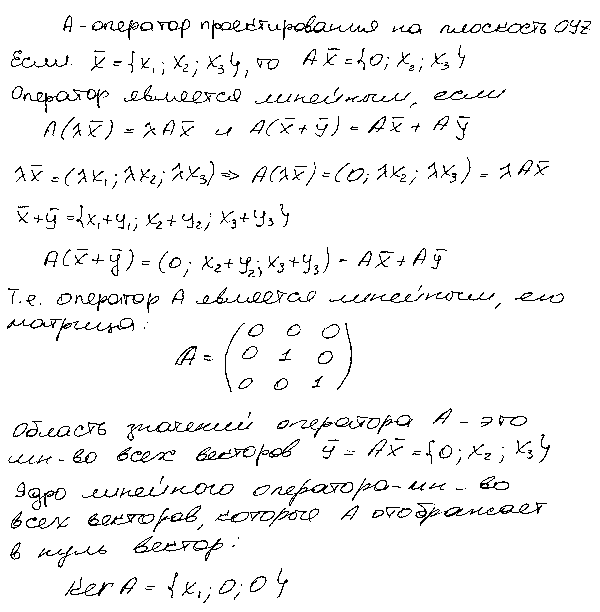 A-оператор проектирования на плоскость OYZ
Если x̄ = {x₁; x₂; x₃}, то Ax̄ = {0; x₂; x₃}
Оператор является линейным, если
A(λx̄) = λAx̄ и A(x̄+ȳ) = Ax̄ + Aȳ
λx̄ = (λx₁; λx₂; λx₃) ⇒ A(λx̄) = (0; λx₂; λx₃) = λAx̄
x̄+ȳ = {x₁+y₁; x₂+y₂; x₃+y₃}
A(x̄+ȳ) = (0; x₂+y₂; x₃+y₃) = Ax̄ + Aȳ
Т.е. оператор A является линейным, его
матрица:
0 0 0
A = 0 1 0
0 0 1
Область значений оператора A - это
мн-во всех векторов ȳ = Ax̄ = {0; x₂; x₃}
Ядро линейного оператора-мн-во
всех векторов, которые A отображает
в нуль вектор:
Ker A = {x₁; 0; 0}